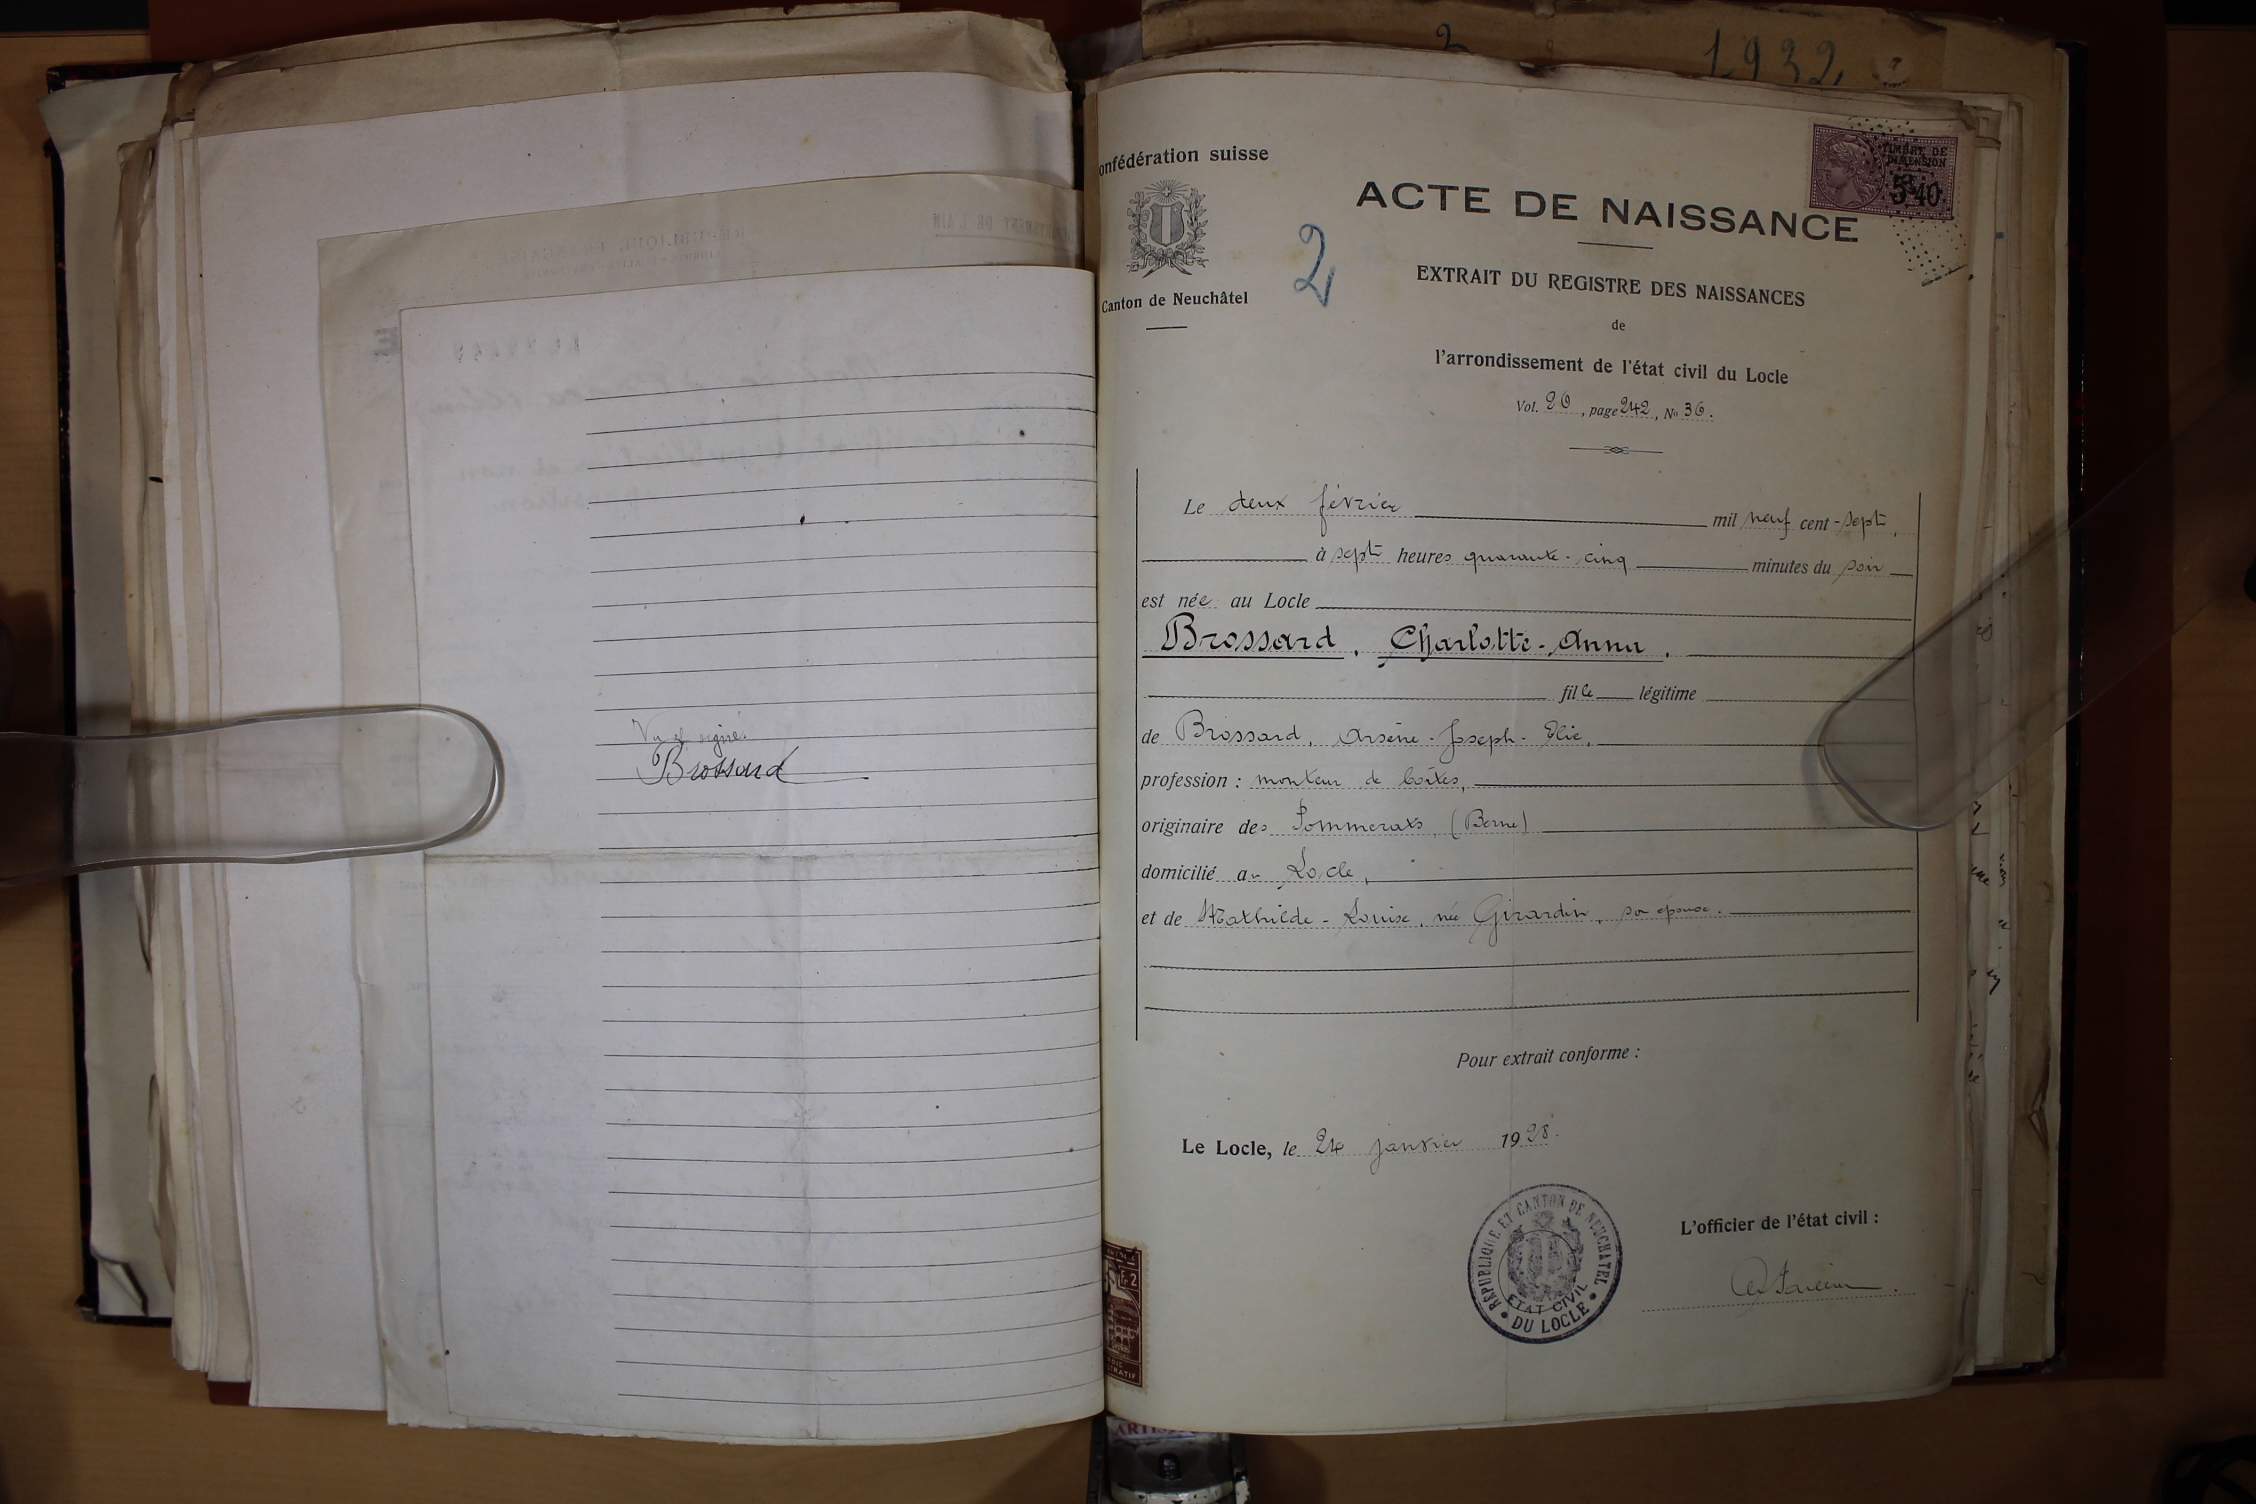 Vu et signé.
Brossard
1932
Confédération suisse
Canton de Neuchâtel
2
TIMBRE DE
DIMENSION
ACTE DE NAISSANCE
EXTRAIT DU REGISTRE DES NAISSANCES
de
l'arrondissement de l'état civil du Locle
Vol. 20, page 242, No 36.
Le deux février mil neuf cent-sept,
à sept heures quarante-cinq minutes du soir
est née au Locle
Brossard, Charlotte-Anna,
fille légitime
de Brossard, Arsène-Joseph-Elie,
profession : monteur de boîtes,
originaire des Pommerats, (Berne)
domicilié au Locle,
et de Mathilde-Louise, née Girardin, son épouse.
Pour extrait conforme :
Le Locle, le 24 janvier 1928.
L'officier de l'état civil :
RÉPUBLIQUE ET CANTON DE NEUCHATEL
ETAT CIVIL
DU LOCLE
Fr. 2